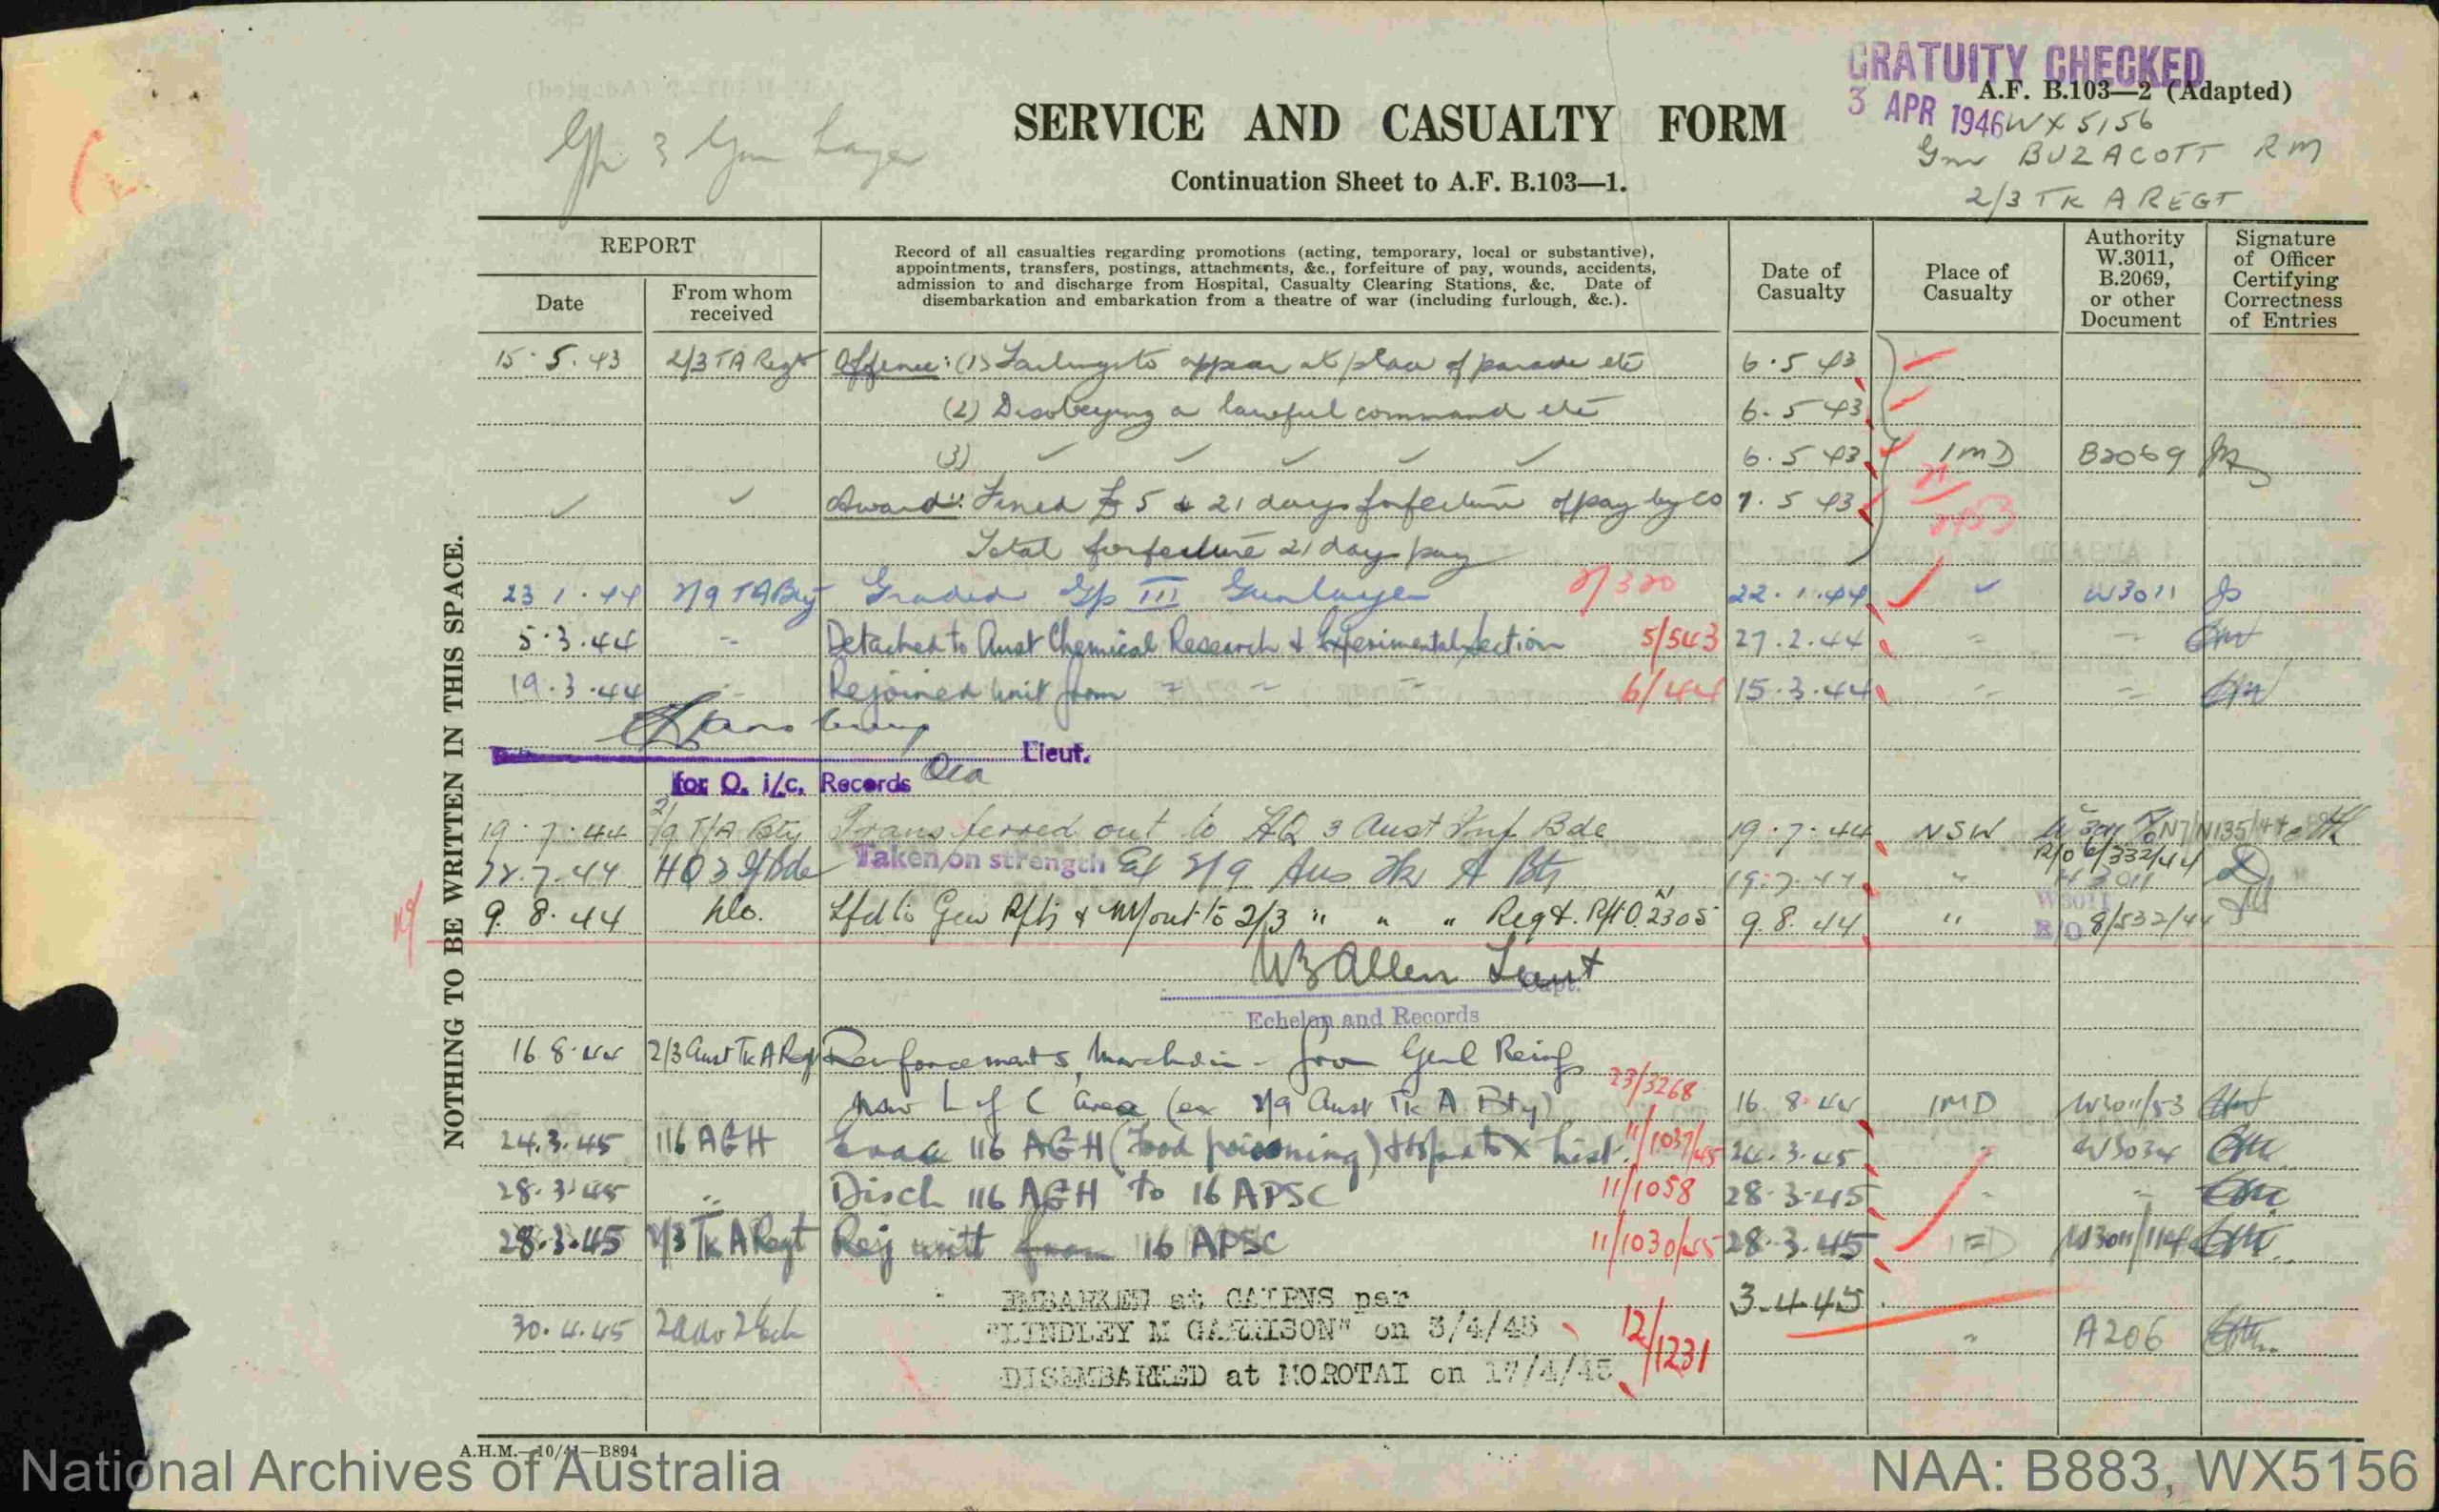 GRATUITY CHECKED
3 APR 1946
A.F. B.103—2 (Adapted)
WX5156
Gnr BUZACOTT RM
2/3 TK A REGT
Gp 3 Gun Layer
SERVICE AND CASUALTY FORM
Continuation Sheet to A.F. B.103—1.
NOTHING TO BE WRITTEN IN THIS SPACE.
REPORT
Date
From whom received
Record of all casualties regarding promotions (acting, temporary, local or substantive),
appointments, transfers, postings, attachments, &c., forfeiture of pay, wounds, accidents,
admission to and discharge from Hospital, Casualty Clearing Stations, &c. Date of
disembarkation and embarkation from a theatre of war (including furlough, &c.).
Date of Casualty
Place of Casualty
Authority W.3011, B.2069, or other Document
Signature of Officer Certifying Correctness of Entries
15.5.43 2/3 TA Regt Offence: (1) Failing to appear at place of parade etc 6.5.43
(2) Disobeying a lawful command etc 6.5.43
(3) 6.5.43 1MD B2069
Award: Fined £5 & 21 days forfeiture of pay by CO 7.5.43
Total forfeiture 21 days pay
23.1.44 2/9 TA Bty Graded Gp III Gunlayer 22.1.44 W3011
5.3.44 Detached to Aust Chemical Research & Experimental Section 5/543 27.2.44
19.3.44 Rejoined Unit from 15.3.44
Lieut.
for O. i/c. Records
19.7.44 2/9 T/A Bty Transferred out to HQ 3 Aust Inf Bde 19.7.44 NSW
R/O 6/332/44
22.7.44 HQ 3 If Bde Taken on strength Ex 2/9 Aus Tk A Bty 19.7.44 " W3011
9.8.44 do. Tfd to Gen Rfts & M/out to 2/3 " " " Regt. RHO.2305 9.8.44 " W3011
R/O 8/532/44
WB Allen Lieut
Capt.
Echelon and Records
16.8.44 2/3 Aust Tk A Regt Reinforcements, March in - from Genl Reinf
NSW L of C Area (ex 2/9 Aust Tk A Bty) 23/3268 16.8.44 1MD W3011/53
24.3.45 116 AGH Evac 116 AGH (Food poisoning) & Tsf to X List 11/1037/45 24.3.45 W3034
28.3.45 " Disch 116 AGH to 16 APSC 11/1058 28.3.45
28.3.45 2/3 Tk A Regt Rej unit from 16 APSC 11/1030/45 28.3.45 W3011/114
EMBARKED at CAIRNS per 3.4.45
30.4.45 "LINDLEY M GARRISON" on 3/4/45 12/1231 " A206
DISEMBARKED at MOROTAI on 17/4/45
A.H.M.—10/41—B894
National Archives of Australia
NAA: B883, WX5156